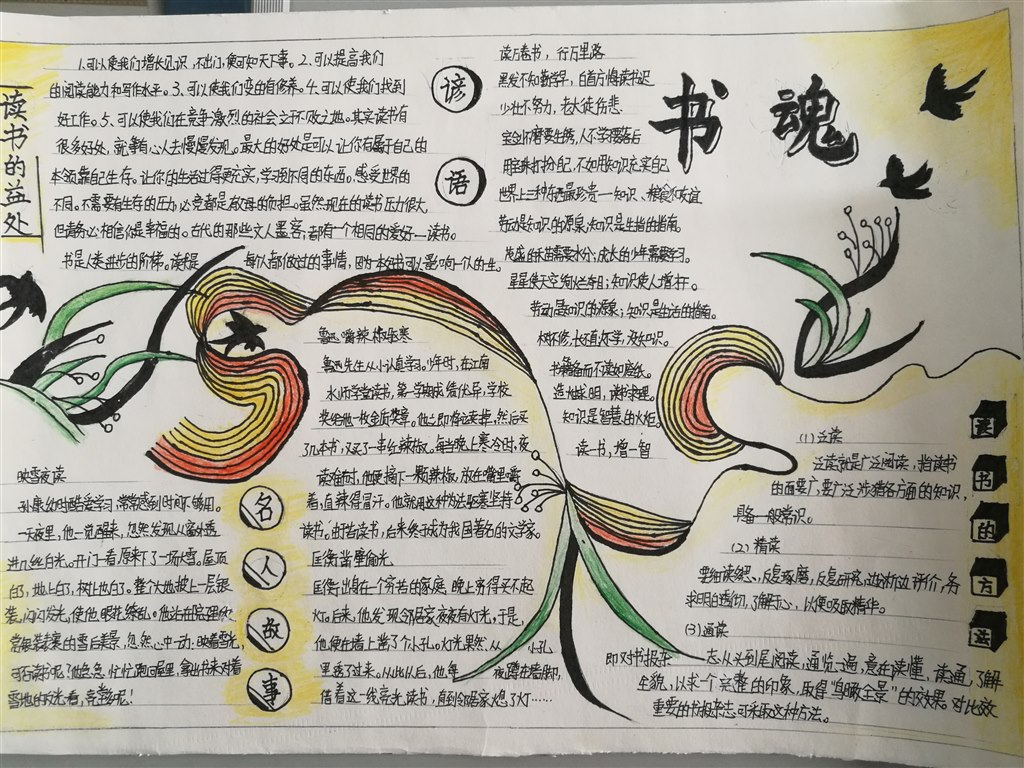 书魂
读书的益处
1.可以使我们增长见识,不出门,便可知天下事。2、可以提高我们
的阅读能力和写作水平。3、可以使我们变的有修养。4、可以使我们找到
好工作。5、可以使我们在竞争激烈的社会立于不败之地。其实读书有
很多好处,就等有心人去慢慢发现。最大的好处是可以让你有属于自己的
本领靠自己生存。让你的生活过得更充实,学习到不同的东西。感受世界的
不同。不需要有生存的压力,必竟都是有父母的负担。虽然现在的读书压力很大
但请务必相信你是幸福的。古代的那些文人墨客,都有一个相同的爱好—读书。
书是人类进步的阶梯。读书是
每个人都做过的事情,因为一本好书可以影响一个人的一生。
谚语
读万卷书,行万里路
黑发不知勤学早,白首方悔读书迟
少壮不努力,老大徒伤悲
宝剑不磨要生锈,人不学习要落后
用珍珠打扮自己,不如用知识充实自己
世界上三种东西最珍贵—知识、粮食和友谊
劳动是知识的源泉;知识是生活的指南。
茂盛的禾苗需要水分;成长的少年需要学习。
星星使天空绚烂夺目;知识使人增才干。
劳动是知识的源泉;知识是生活的指南。
树不修,长不直;人不学,没知识。
书籍备而不读如废纸。
造烛求明,读书求理。
知识是智慧的火炬。
读书,增一智
名人故事
映雪夜读
孙康幼时酷爱学习,常常感到时间不够用。
一天夜里,他一觉醒来,忽然发现从窗外透
进几丝白光。开门一看,原来下了一场大雪。屋顶
白了,地上白了,树上也白了。整个大地披上一层银
装,闪闪发光,使他眼花缭乱。他站在院里欣
赏银装素裹的雪后美景,忽然心中一动:映着雪光,
可否读书呢?他急急忙忙跑回屋里,拿出书来对着
雪地的反光看,竟
鲁迅嚼辣椒驱寒
鲁迅先生从小认真学习。少年时,在江南
水师学堂读书,第一学期成绩优异,学校
奖给他一枚金质奖章。他立即拿去卖掉,然后买
了几本书,又买了一串红辣椒。每当晚上寒冷时,夜
读难耐,他便摘下一颗辣椒,放在嘴里嚼
着,直辣得冒汗。他就用这种办法驱寒坚持
读书。由于苦读书,后来终于成为我国著名的文学家。
匡衡凿壁偷光
匡衡出身在一个穷苦的家庭,晚上穷得买不起
灯。后来,他发现邻居家夜夜有灯光,于是,
他便在墙上凿了个小孔。灯光果然从小孔
里透了过来。从此以后,他每夜蹲在墙脚,
借着这一线亮光读书,直到邻居家熄了灯……
读书的方法
(1)泛读
泛读就是广泛阅读,指读书
的面要广,要广泛涉猎各方面的知识,
具备一般常识。
(2)精读
要细读多思、反复琢磨,反复研究,边分析边评价,务
求明白透彻,了解于心,以便吸取精华。
(3)通读
即对书报杂志从头到尾阅读,通览一遍,意在读懂,读通,了解
全貌,以求一个完整的印象,取得"鸟瞰全景"的效果。对比较
重要的书报杂志可采取这种方法。